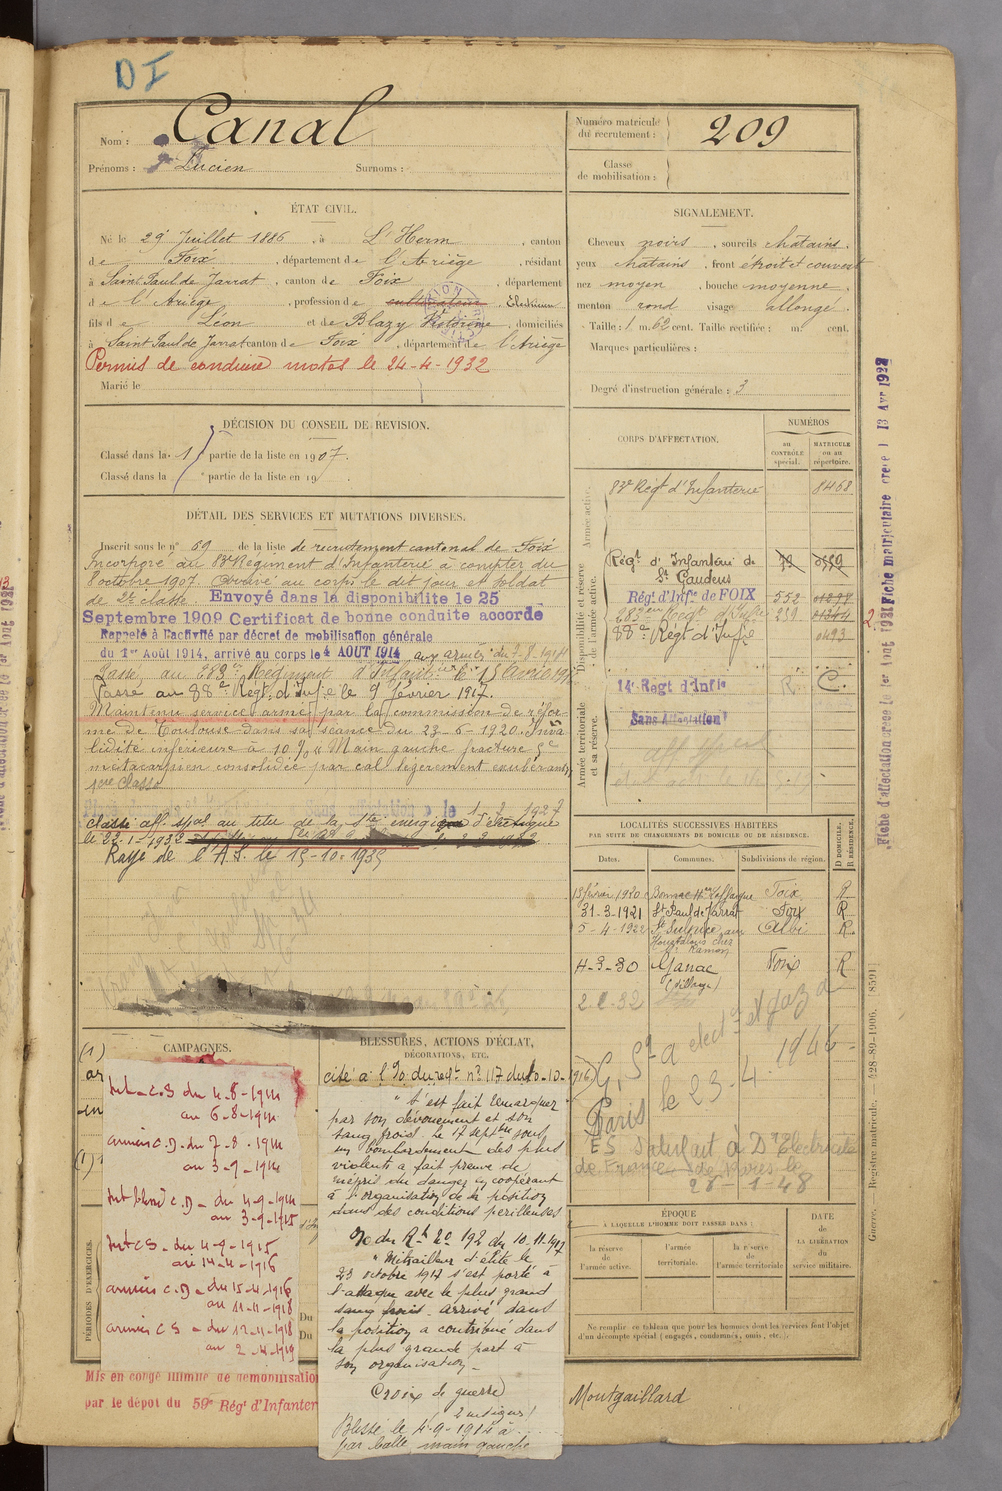 DI
Nom : Canal
Prénoms : Lucien Surnoms :
Numéro matricule du recrutement : 209
Classe de mobilisation :
ÉTAT CIVIL.
Né le 29 Juillet 1886, à L'Herm, canton
de Foix, département de l'Ariège, résidant
à Saint Paul de Jarrat, canton de Foix, département
de l'Ariège, profession de cultivateur Electricien
fils de Léon et de Blazy Victorine, domiciliés
à Saint Paul de Jarrat canton de Foix, département de l'Ariège
Permis de conduire motos le 24-4-1932
Marié le
SIGNALEMENT.
Cheveux noirs, sourcils chatains.
yeux chatains, front étroit et couvert
nez moyen, bouche moyenne,
menton rond visage allongé.
Taille : 1 m. 62 cent. Taille rectifiée : m. cent.
Marques particulières :
Degré d'instruction générale : 3
DÉCISION DU CONSEIL DE REVISION.
Classé dans la 1 partie de la liste en 1907.
Classé dans la partie de la liste en 19
DÉTAIL DES SERVICES ET MUTATIONS DIVERSES.
Inscrit sous le n° 69 de la liste de recrutement cantonal de Foix
Incorporé au 83e Régiment d'Infanterie à compter du
8 octobre 1907. Arrivé au corps le dit jour et soldat
de 2e classe. Envoyé dans la disponibilité le 25
Septembre 1909 Certificat de bonne conduite accordé
Rappelé à l'activité par décret de mobilisation générale
du 1er Août 1914, arrivé au corps le 4 AOUT 1914 aux armées du 7-8-1914
Passé au 283e Régiment d'Infanterie le 15 Avril 191
Passé au 88e Régt d'Infie le 9 février 1917.
Maintenu service armé par la commission de réfor-
me de Toulouse dans sa séance du 23-6-1920. Inva
lidité inférieure à 10 % "Main gauche fracture 5e
métacarpien consolidée par cal légèrement exubérant,
1ere Classe
Sans affectation le 1-2-1927
classé aff. spal au titre de la Sté énergie électrique
le 22-1-1932
Rayé de l'A.S. le 15-10-1935
CORPS D'AFFECTATION.
NUMÉROS
au CONTRÔLE spécial.
MATRICULE ou au répertoire.
Armée active.
83e Régt d'Infanterie 8468
Disponibilité et réserve de l'armée active.
Régt d'Infanterie de St Gaudens
Régt d'Infie de FOIX 552
283eme Régt d'Infie 239
88e Régt d'Infie 0493
Armée territoriale et sa réserve.
14e Régt d'Infie R. C.
Sans Affectation
LOCALITÉS SUCCESSIVES HABITÉES
PAR SUITE DE CHANGEMENTS DE DOMICILE OU DE RÉSIDENCE.
D DOMICILE. R RÉSIDENCE.
Dates. Communes. Subdivisions de région.
13 février 1920 Bonnac Foix R
31-3-1921 St Paul de Jarrat Foix R
5-4-1922 St Sulpice Albi R.
4-3-30 Ganac (village) Foix R
2-2-32
le 23-4-1946
Paris
ES Satisfait à Dt Electricité
de France de Paris le
28-1-48
ÉPOQUE
A LAQUELLE L'HOMME DOIT PASSER DANS :
la réserve de l'armée active.
l'armée territoriale.
la réserve de l'armée territoriale
DATE DE LA LIBÉRATION du service militaire.
Ne remplir ce tableau que pour les hommes dont les services font l'objet
d'un décompte spécial (engagés, condamnés, omis, etc.).
Montgaillard
CAMPAGNES.
PÉRIODES D'EXERCICES.
Int. C.S du 4-8-1914
au 6-8-1914
armées C.D. du 7-8-1914
au 3-9-1914
Int blessé C.D - du 4-9-1914
au 3-9-1915
Int CS - du 4-9-1915
au 14-4-1916
armées C.D - du 15-4-1916
au 11-11-1918
armées C S - du 12-11-1918
au 2-4-1919
Mis en congé illimité de démobilisation
par le dépôt du 59e Régt d'Infanter
BLESSURES, ACTIONS D'ÉCLAT,
DÉCORATIONS, ETC.
cité à l'O. du regt n° 117 du 10-10-1916
" s'est fait remarquer
par son dévouement et son
sang froid. Le 17 septbre sous
un bombardement des plus
violents a fait preuve de
mépris du danger en coopérant
à l'organisation de la position
dans des conditions périlleuses
O. du Rt n° 192 du 10-11-1917
" Mitrailleur d'élite le
23 octobre 1917 s'est porté à
l'attaque avec le plus grand
sang froid. arrivé dans
la position a contribué dans
la plus grande part à
son organisation -
Croix de guerre
Blessé le 4-9-1914 à
par balle main gauche
Fiche d'affectation créée le 1er Aout 1931
Fiche matriculaire créée l 13 Avr 1922
Guerre. - Registre matricule. - 428-89-1906. [8591]